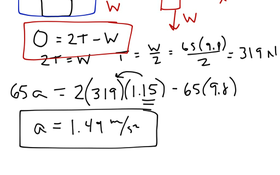 W
W
0 = 2T - W
2T = W T = W/2 = 65(9.8)/2 = 319 N
65a = 2(319)(1.15) - 65(9.8)
a = 1.49 m/s²